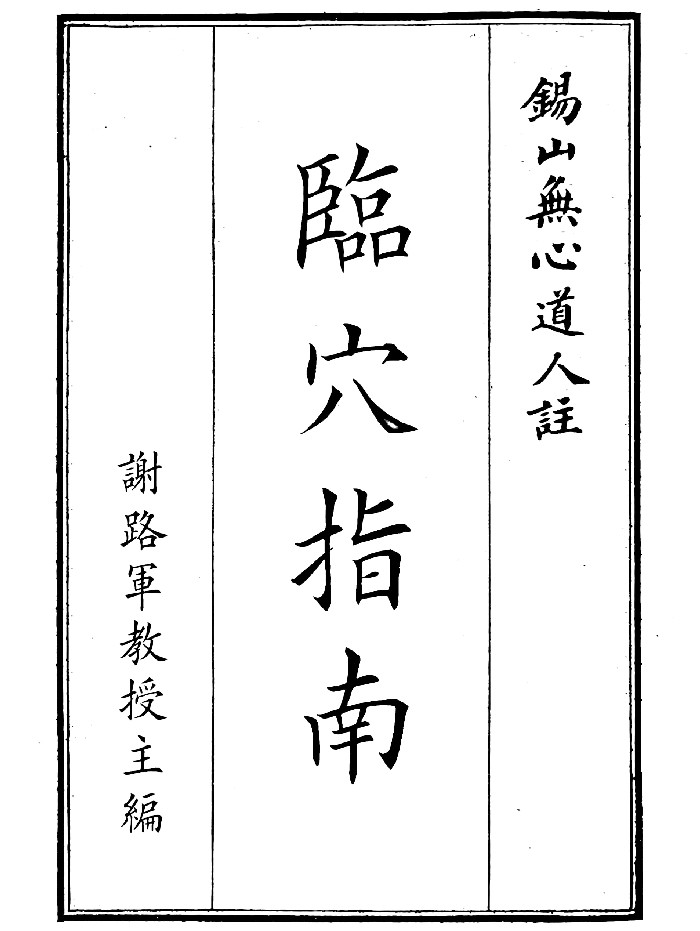 錫山無心道人註
臨穴指南
謝路軍教授主編